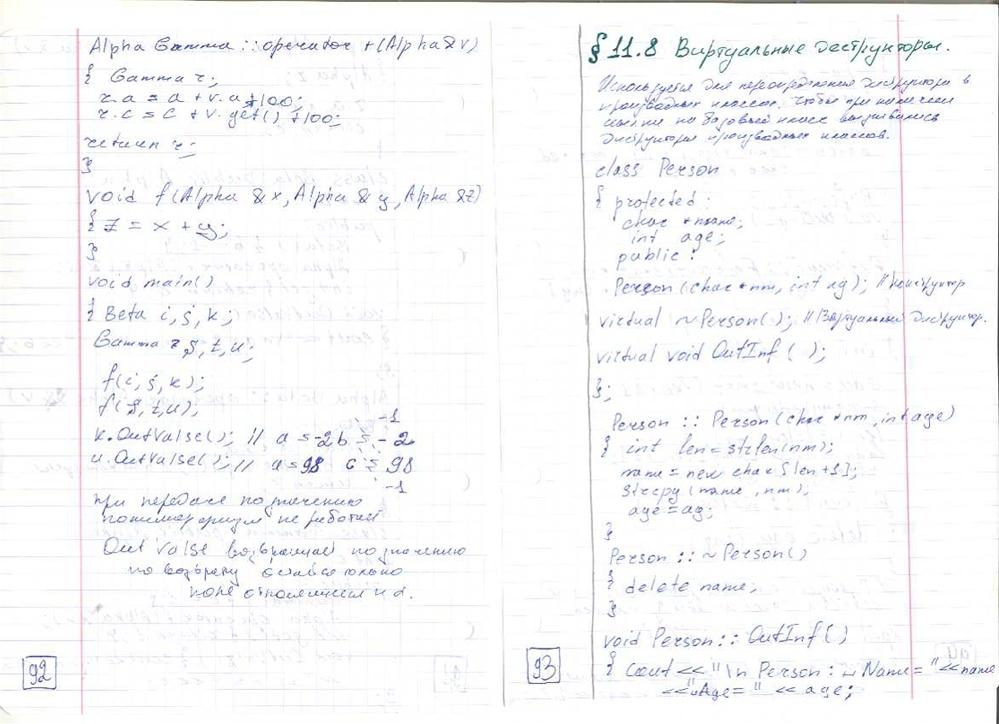 Alpha Gamma :: operator +(Alpha &v)
{ Gamma r;
r.a = a + v.a + 100;
r.c = c + v.get() + 100;
return r;
}
void f(Alpha &x, Alpha &y, Alpha &z)
{ z = x + y;
}
void main()
{ Beta i, j, k;
Gamma r, s, t, u;
f(i, j, k);
f(s, t, u);
-1
k.OutValse(); // a = -2 b = -2
u.OutValse(); // a = 98 c = 98
-1
при передаче по значению
полиморфизм не работает
Out Valse возвращает по значению
по возврату остаётся только
поле
92
§ 11.8 Виртуальные деструкторы.
Используется для переопределения деструктора в
производных классах. Чтобы при
ссылки на базовый класс вызывались
деструкторы производных классов.
class Person
{ protected:
char *name;
int age;
public:
Person(char *nm, int ag); // конструктор
virtual ~Person(); // Виртуальный деструктор.
virtual void OutInf ( );
};
Person :: Person(char *nm, int age)
{ int len = strlen(nm);
name = new char [len + 1];
strcpy (name, nm);
age = ag;
}
Person :: ~Person()
{ delete name;
}
void Person :: OutInf ( )
{ Cout << "\n Person: ␣ Name = " << name
<< "␣Age = " << age;
93